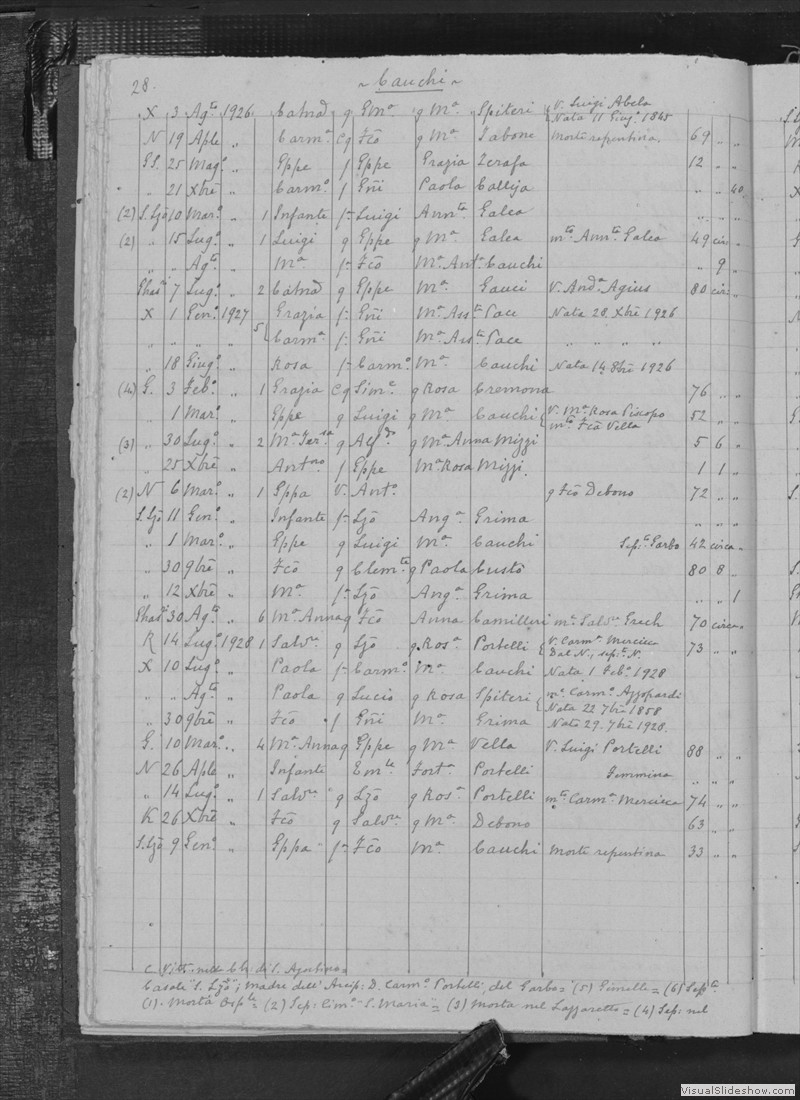 28. ~ Cauchi ~
X 3 Agto 1926 Catnd g Ema g Ma Spiteri V. Luigi Abela
Nata 11 Giugo 1845
N 19 Aple " Carma Cg Fco g Ma Tabone Morte repentina. 69 " "
GS. 25 Mago " Gppe f Gppe Grazia Zerafa 12 " "
" 21 Xbre " Carmo f Gni Paola Callija " " 40
(2) S.Ljo 10 Maro " 1 Infante f- Luigi Annta Galea " " "
(2) " 15 Lugo " 1 Luigi g Gppe g Ma Galea mto Annta Galea 49 circ "
" " Agto " Ma f- Fco Ma Anta Cauchi " 9 "
Ghasi 7 Lugo " 2 Catnd g Gppe Ma Gauci V. Anda Agius 80 circ "
X 1 Geno 1927 5 Grazia f- Gni Ma Assta Pace Nata 28 Xbre 1926
" " " " Carma f- Gni Ma Assta Pace " " " "
" 18 Giugo " Rosa f- Carmo Ma Cauchi Nata 14 8bre 1926
(4) G. 3 Febo " 1 Grazia Cg Simne g Rosa Cremona 76 " "
" 1 Maro " Gppe g Luigi g Ma Cauchi V. Ma Rosa Piscopo 52 " "
mto Fca Vella
(3) " 30 Lugo " 2 Ma Teresa g Alfdo g Ma Anna Mizzi 5 6 "
" 25 Xbre " Antno f Gppe Ma Rosa Mizzi. 1 1 "
(2) N 6 Maro " 1 Gppa V. Anto g Fco Debono 72 " "
S.Ljo 11 Geno " Infante f- Ljo Anga Grima " " "
" 1 Maro " Gppe g Luigi Ma Cauchi Septo Garbo 42 circa "
" 30 9bre " Fco g Clemte g Paola Custo 80 8 "
" 12 Xbre " Ma f- Ljo Anga Grima " " 1
Ghasi 30 Agto " 6 Ma Anna g Fco Anna Camilleri Salvre Grech 70 circa "
K 14 Lugo 1928 1 Salvre g Ljo g Rosa Portelli V. Carma Mercieca 73 " "
Dal N., septo N.
X 10 Lugo " Paola f- Carmo Ma Cauchi Nata 1 Febo 1928
" " Agto " Paola g Lucio g Rosa Spiteri Carmo Azzopardi
Nata 22 7bre 1858
" 30 9bre " Fco f Gni Ma Grima Nato 29 7bre 1928.
G. 10 Maro " 4 Ma Anna g Gppe g Ma Vella V. Luigi Portelli 88 " "
N 26 Aple " Infante Emle Forta Portelli Gemmina " " "
" 14 Lugo " 1 Salvre g Ljo g Rosa Portelli mto Carma Mercieca 74 " "
K 26 Xbre " Fco g Salvre g Ma Debono 63 " "
S.Ljo 9 Geno " Gppa f- Fco Ma Cauchi Morte repentina 33 " "
C. Vitt. nella Ch. di S. Agostino=
Casale "S. Ljo"; Madre dell' Arcip: D. Carmo Portelli, del Garbo= (5) Gemelle= (6) Septa
(1). Morta Osple (2) Sep: Cimo "S. Maria"= (3) Morta nel Lazzaretto= (4) Sep: nel
VisualSlideshow.com